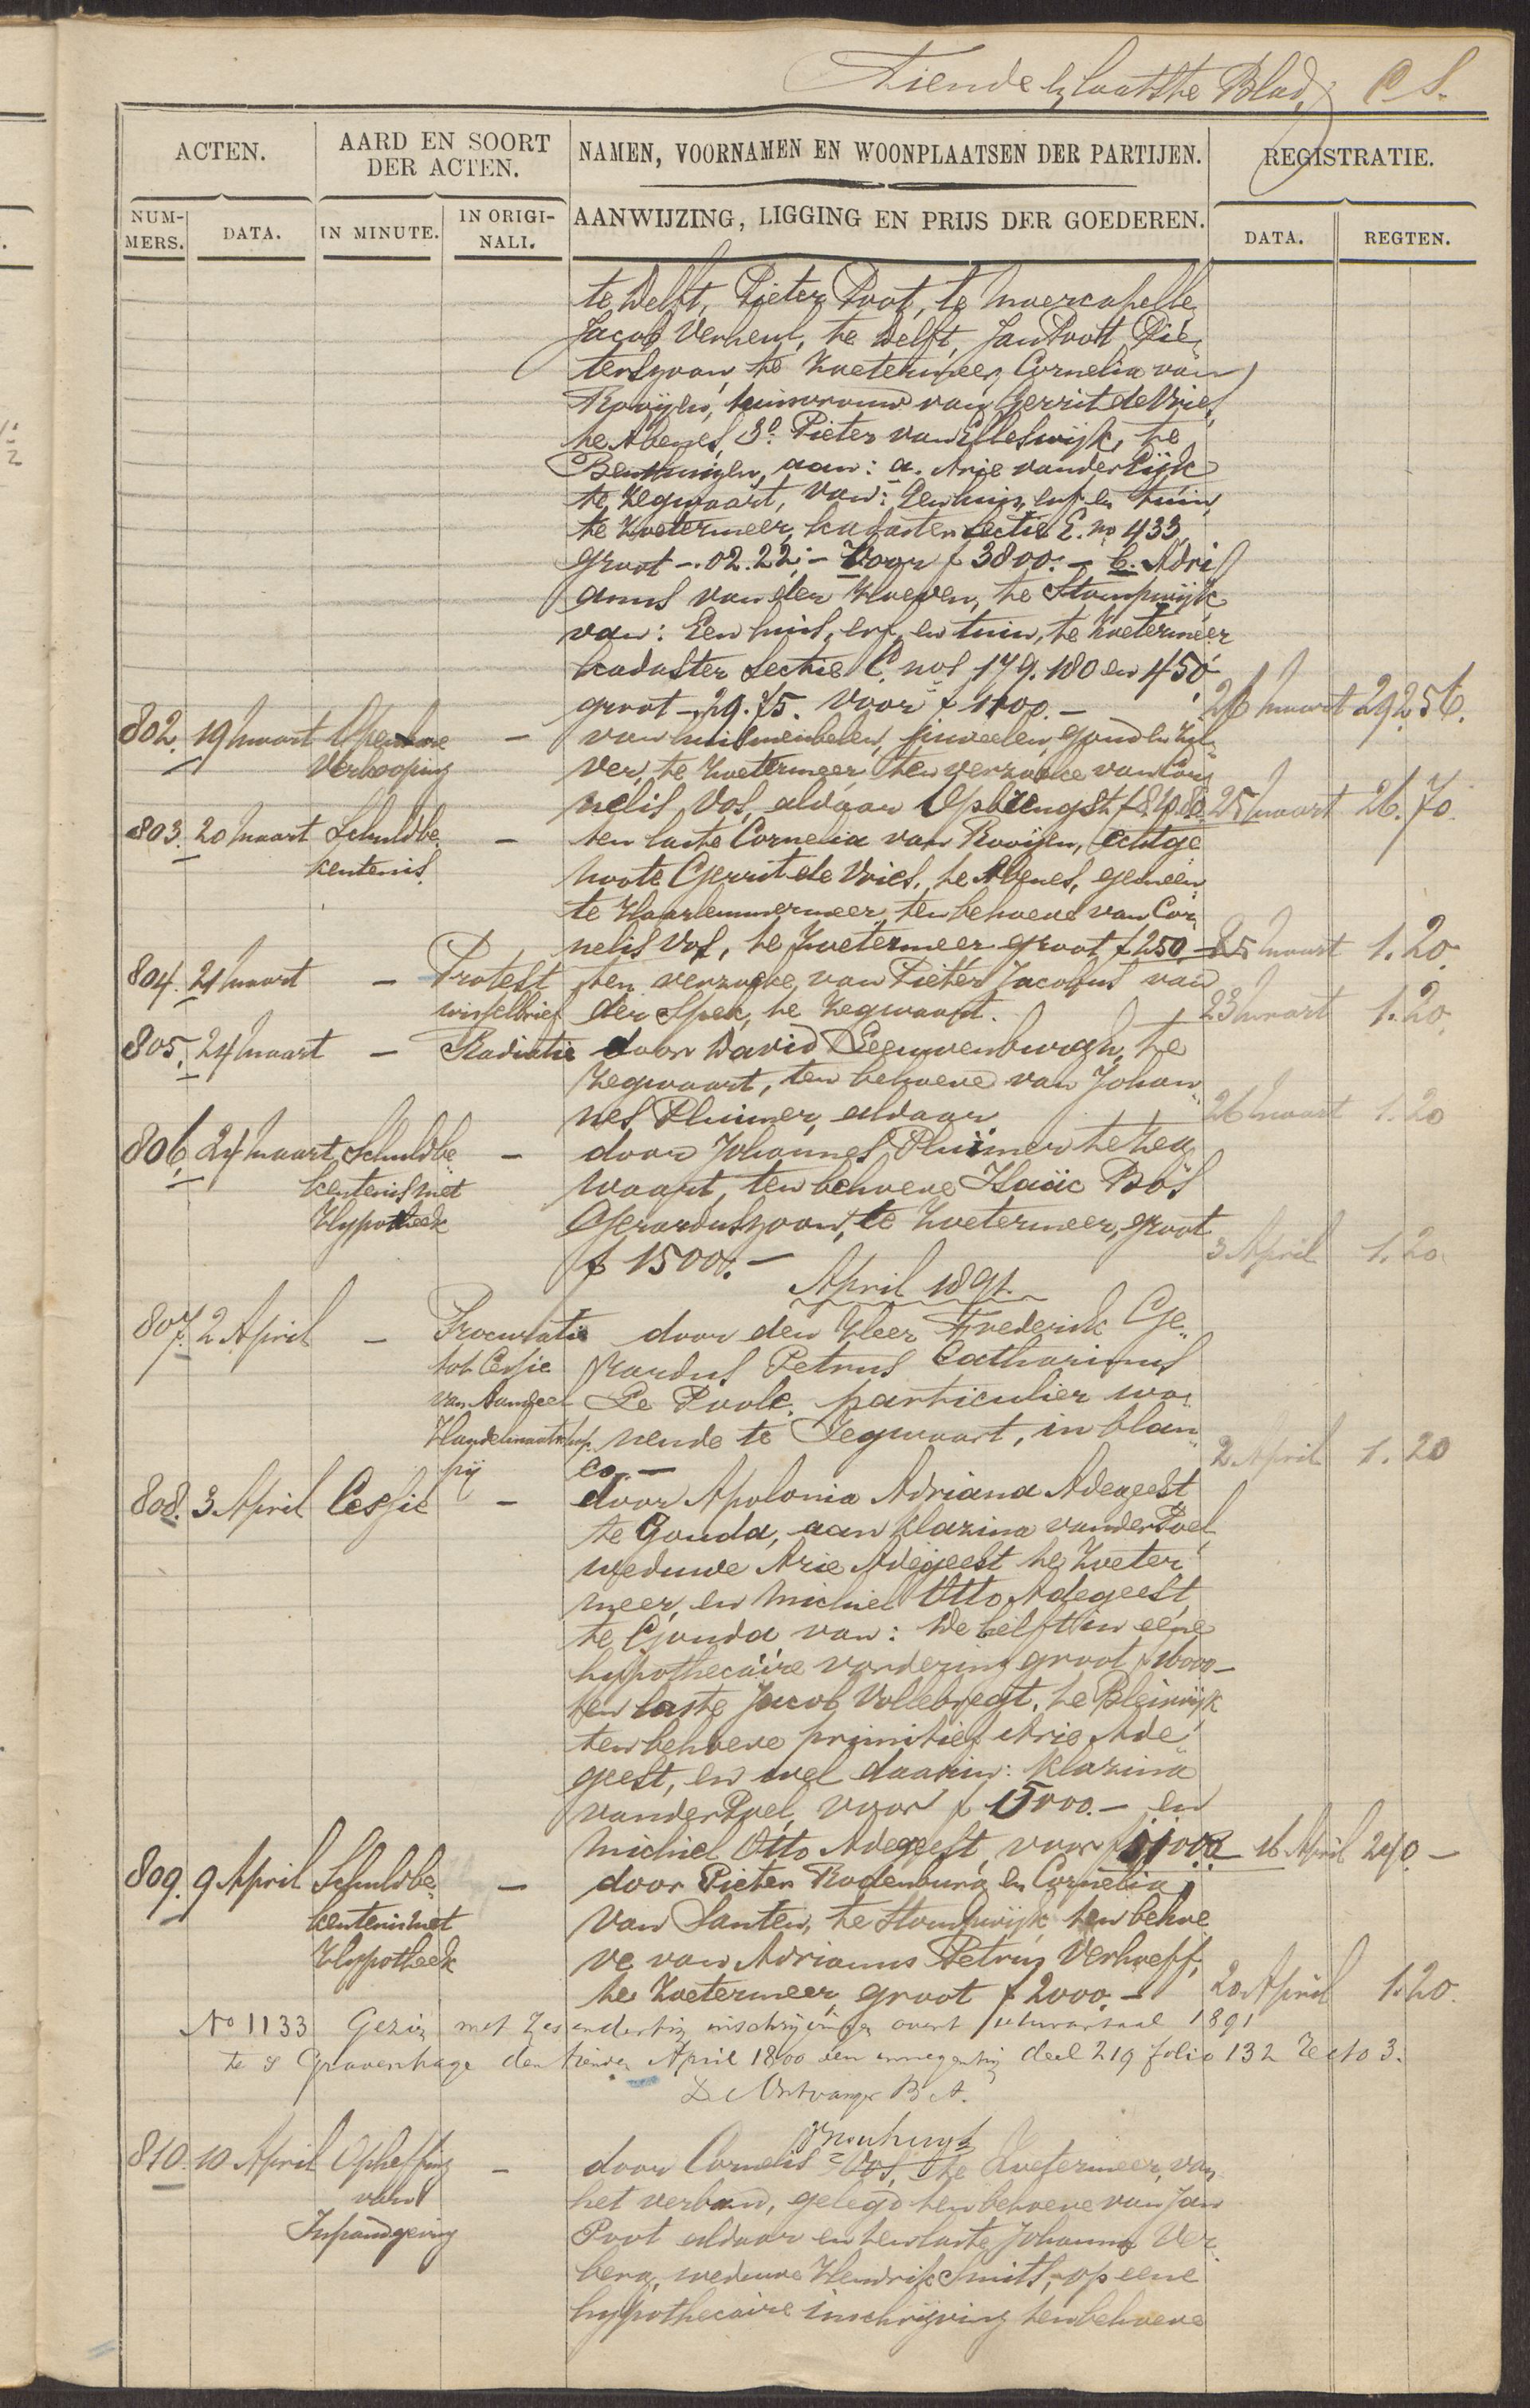 Tiende & laatste Blad, C S.
ACTEN. AARD EN SOORT DER ACTEN. NAMEN, VOORNAMEN EN WOONPLAATSEN DER PARTIJEN. REGISTRATIE.
NUMMERS. DATA. IN MINUTE. IN ORIGINALI. AANWIJZING, LIGGING EN PRIJS DER GOEDEREN. DATA. REGTEN.
te Delft, Pieter Poot, te Moercapelle,
Jacob Verheul, te Delft, Jan Poot Pie„
terszoon, te Zoetermeer, Cornelia van
Rooijen, huisvrouw van Gerrit de Vries,
te Abenes, 3o. Pieter van Elleswijk, te
Benthuizen, aan: a. Arie van der Dijk
te Zegwaart, van: Een huis, erf en tuin,
te Zoetermeer, kadaster sectie E. no 433,
groot -.02.22; - Voor f 3800.- b. Adri„
anus van der Hoeven, te Stompwijk,
van: Een huis, erf en tuin, te Zoetermeer
kadaster sectie C. nos 179. 180 en 450
groot -.29.75. voor f 1100.- 26 Maart 292.56.
802. 19 Maart Openbare - van huismeubelen, juweelen, goud en zil„
Verkooping ver, te Zoetermeer, ten verzoeke van Cor„
nelis Vos, aldaar Opbrengst 25 Maart 26.70.
803. 20 Maart Schuldbe„ - ten laste Cornelia van Rooijen, echtge„
kentenis. noote Gerrit de Vries, te Abenes, gemeen„
te Haarlemmermeer, ten behoeve van Cor„
nelis Vos, te Zoetermeer groot f 250.- 25 Maart 1.20.
804. 21 Maart - Protest ten verzoeke, van Pieter Jacobus van
wisselbrief der Spek, te Zegwaart. 23 Maart 1.20.
805. 24 Maart - Radiatie door David Leeuwenburgh, te
Zegwaart, ten behoeve van Johan„
nes Pluimer, aldaar. 26 Maart 1.20
806. 24 Maart Schuldbe„ - door Johannes Pluimer te Zeg„
kentenis met waart, ten behoeve Isaäc Bos
Hypotheek Gerarduszoon, te Zoetermeer, groot
f 1500.- 3 April 1.20.
April 1891.
807. 2 April - Procuratie door den Heer Frederik Ge„
tot Cessie rardus Petrus Catharinus
van Aandeel Le Poole, particulier wo„
Handelmaatschap„ nende te Zegwaart, in blan„
pij co.- 2 April 1.20
808. 3 April Cessie - door Apolonia Adriana Adegeest
te Gouda, aan Klazina van der Poel,
weduwe Arie Adegeest te Zoeter„
meer, en Michiel Otto Adegeest
te Gouda, van: De helft in eene
hypothecaire vordering groot f 16000.-
ten laste Jacob Vollebregt, te Bleiswijk
ten behoeve primitief Arie Ade„
geest, en wel daarin: Klazina
van der Poel, voor f 5000.- en
Michiel Otto Adegeest, voor 16 April 240.-
809. 9 April Schuldbe„ - door Pieter Rodenburg en Cornelia
kentenis met van Santen, te Stompwijk, ten behoe„
Hypotheek ve van Adrianus Petrus Verhoeff,
te Zoetermeer, groot f 2000.- 20 April 1.20.
No 1133 Gezien met zes en dertig inschrijvingen over 1e kwartaal 1891
te s Gravenhage den tienden April 1800 een en negentig deel 219 folio 132 recto 3.
De Ontvanger B A.
810. 10 April Opheffing - door Cornelis Vos, te Zoetermeer, van
van het verband, gelegd ten behoeve van Jan
Inpandgeving Poot aldaar en ten laste Johanna Ver„
berg, weduwe Hendrik Smits, op eene
hypothecaire inschrijving ten behoeve